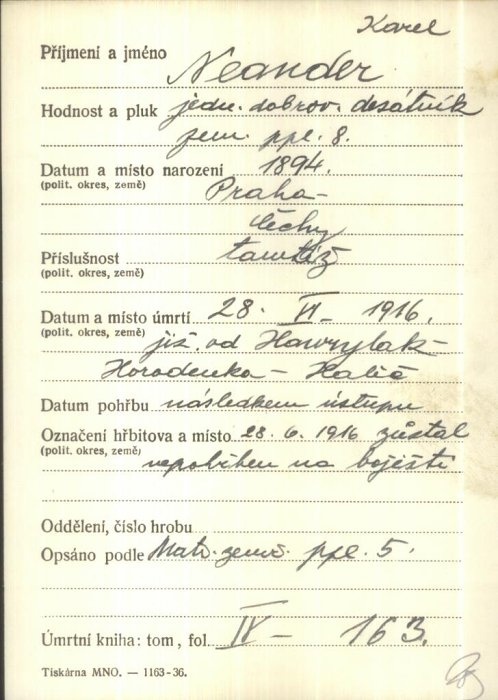 Karel
Příjmení a jméno Neander
Hodnost a pluk jedn. dobrov. desátník
zem. ppl. 8.
Datum a místo narození 1894.
(polit. okres, země) Praha-
Čechy
Příslušnost tamtéž
(polit. okres, země)
Datum a místo úmrtí 28. VI- 1916.
(polit. okres, země) již. od Hawrylak-
Horodenka - Halič
Datum pohřbu následkem ústupu
Označení hřbitova a místo 28. 6. 1916 zůstal
(polit. okres, země) nepohřben na bojišti
Oddělení, číslo hrobu
Opsáno podle Matr. zemř. ppl. 5.
Úmrtní kniha: tom, fol. IV - 163.
Tiskárna MNO. — 1163-36.